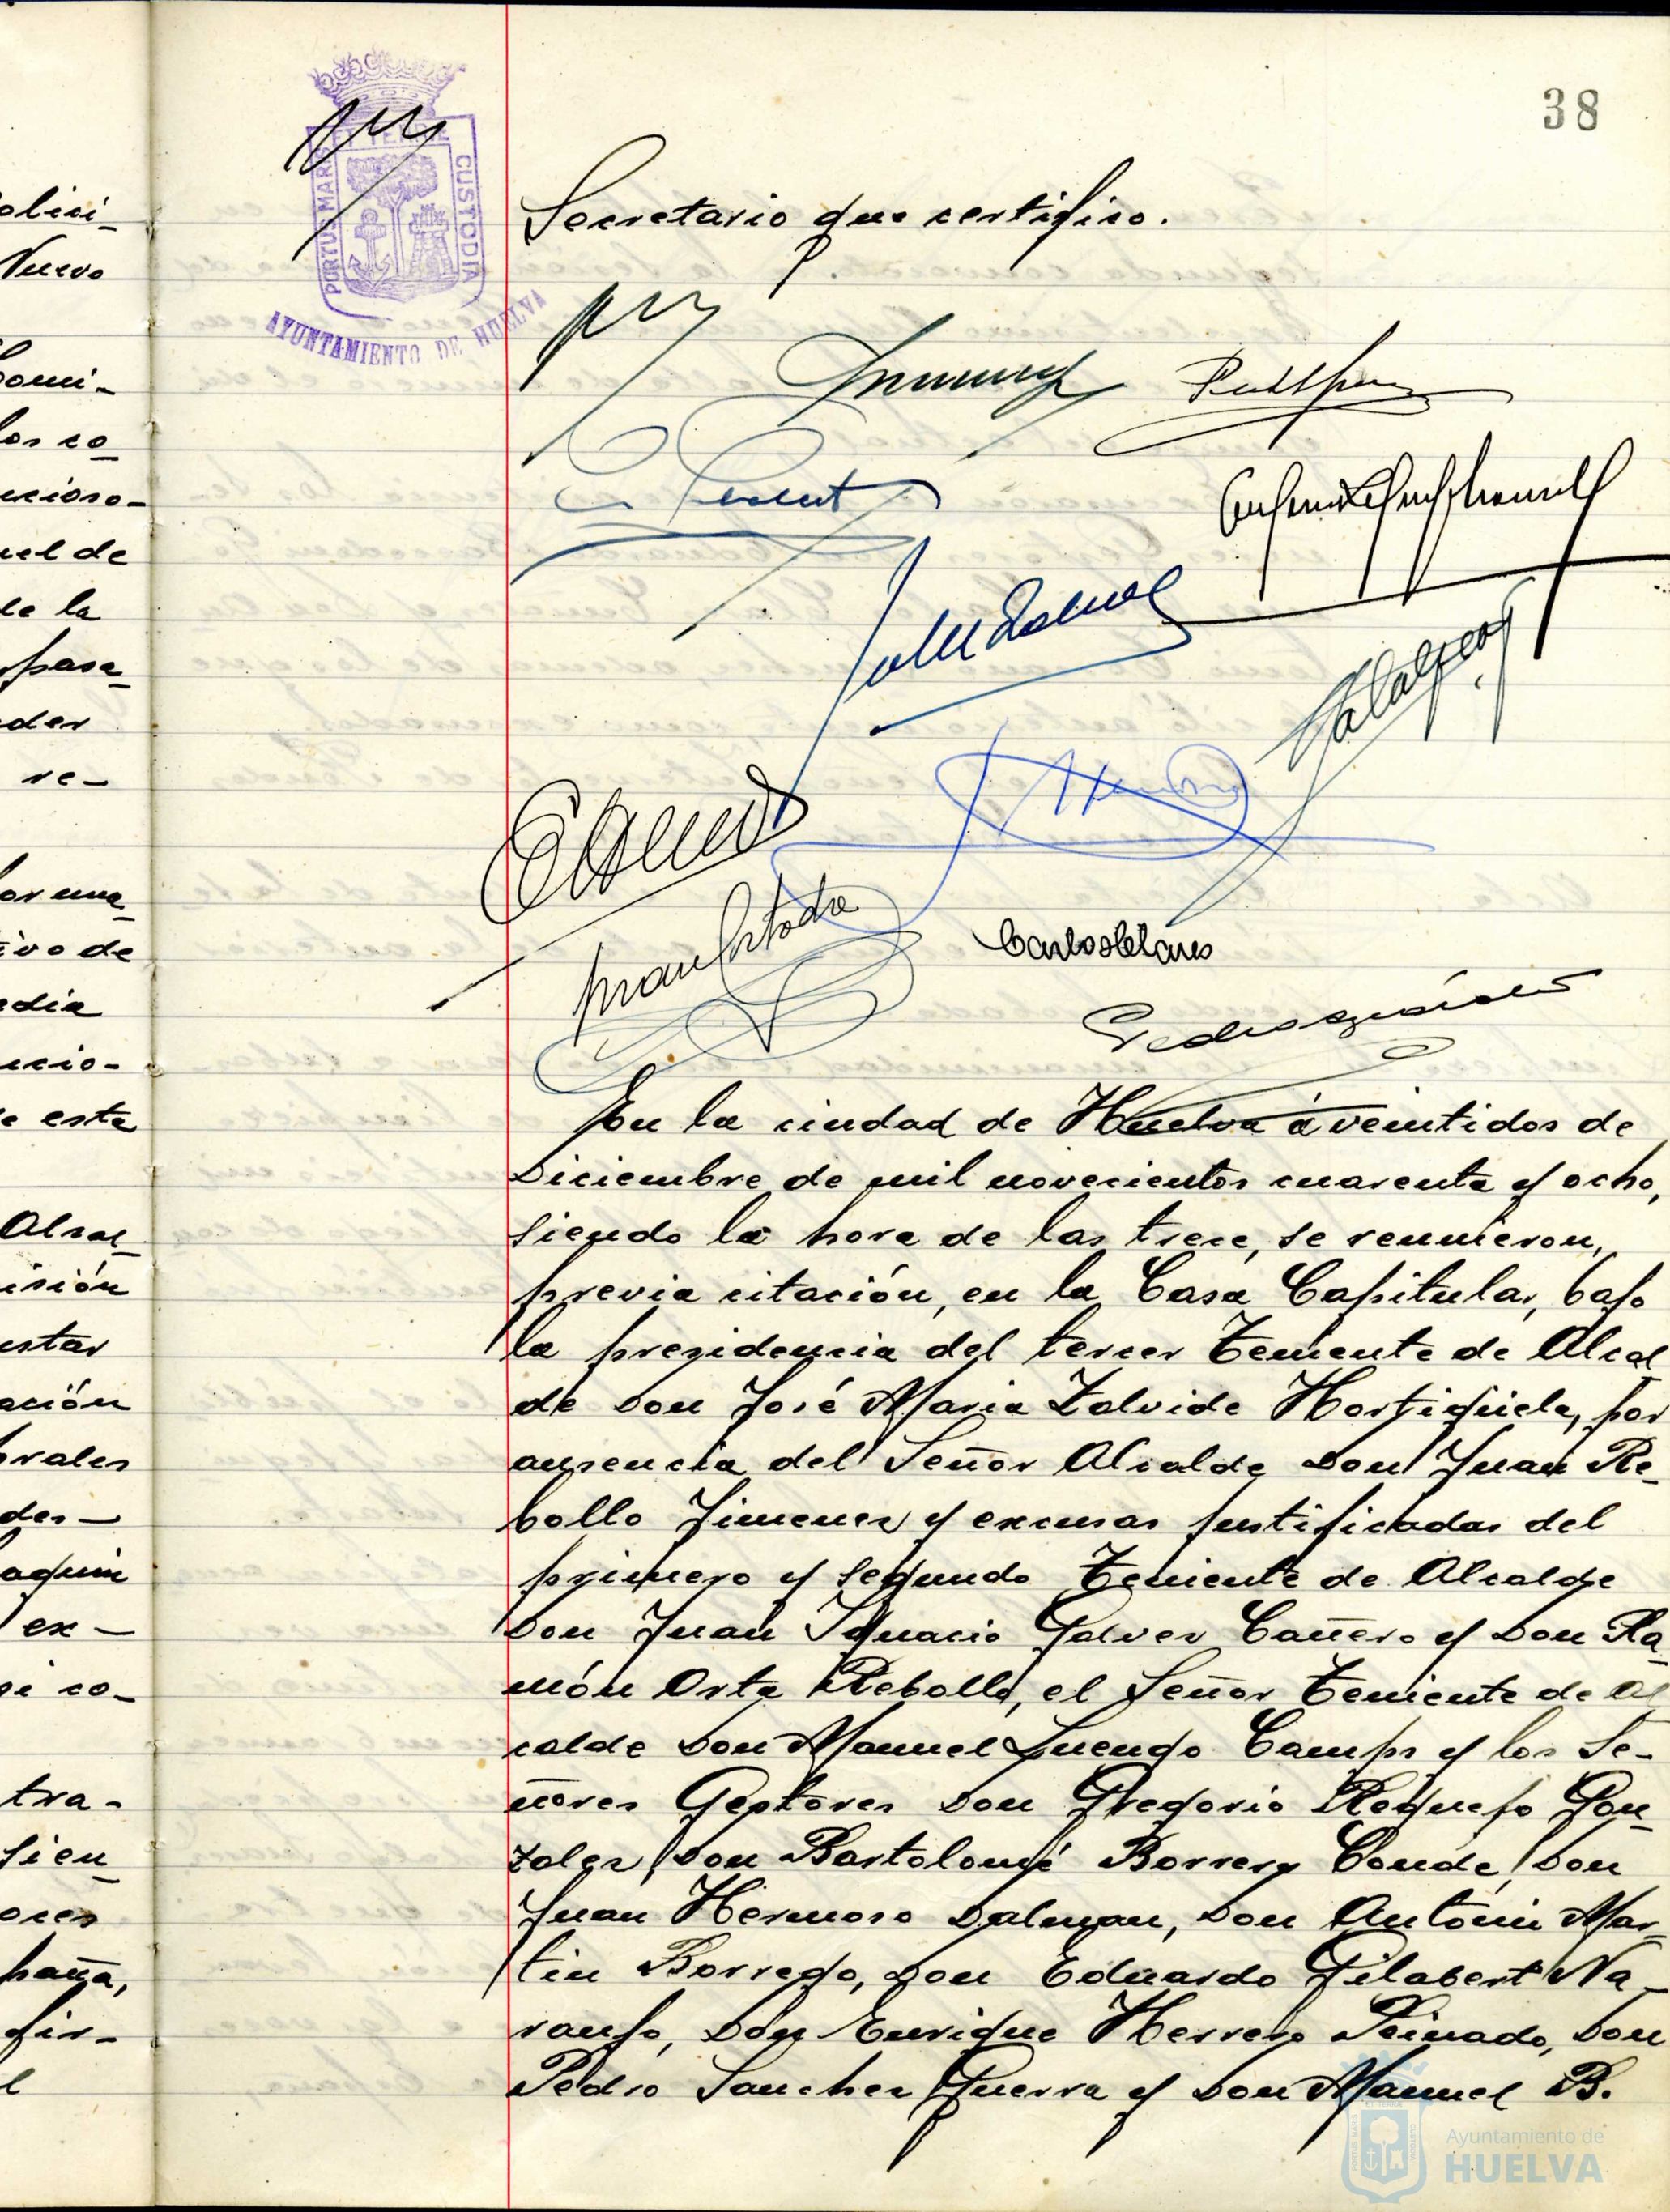 38
PORTUS MARIS ET TERRAE CUSTODIA
AYUNTAMIENTO DE HUELVA
Secretario que certifico.
Carlos
Pedro
En la ciudad de Huelva á veintidos de
Diciembre de mil novecientos cuarenta y ocho,
siendo la hora de las trece, se reunieron,
previa citación, en la Casa Capitular, bajo
la presidencia del tercer Teniente de Alcal
de Don José Maria Zalvide Hortigüela, por
ausencia del Señor Alcalde Don Juan Re-
bollo Jimenez y excusas justificadas del
primero y segundo Teniente de Alcalde
Don Juan Ignacio Galvez Cañero y Don Ra-
món Orta Rebollo, el Señor Teniente de Al
calde Don Manuel Luengo Camps y los Se-
ñores Gestores Don Gregorio Requejo Gon-
zalez, Don Bartolomé Borrero Conde, Don
Juan Hermoso Dalmau, Don Antonio Mar-
tin Borrego, Don Eduardo Filabert Na-
ranjo, Don Enrique Herrero Peinado, Don
Pedro Sanchez Guerra y Don Manuel B.
olici-
Nuevo
Comi-
los co
ncioso-
uel de
de la
pasa-
der
re-
or una
tivo de
edia
ncio-
e este
Alcal-
isión
estar
ación
orales
des-
aquin
ex-
si co-
tra-
sien-
ores
paña,
fir-
l
Ayuntamiento de
HUELVA